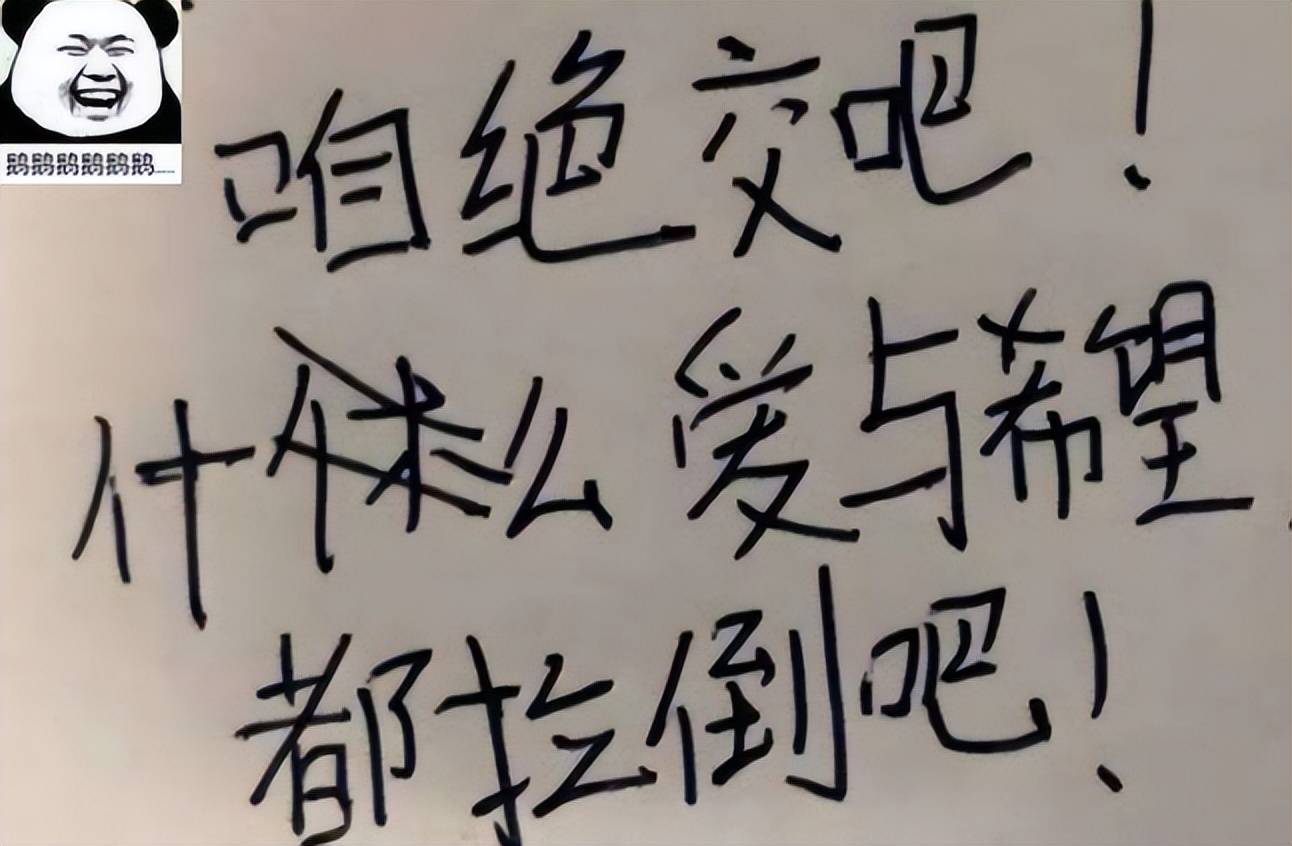 鹅鹅鹅鹅鹅鹅......
咱绝交吧！
什么爱与希望
都拉倒吧！